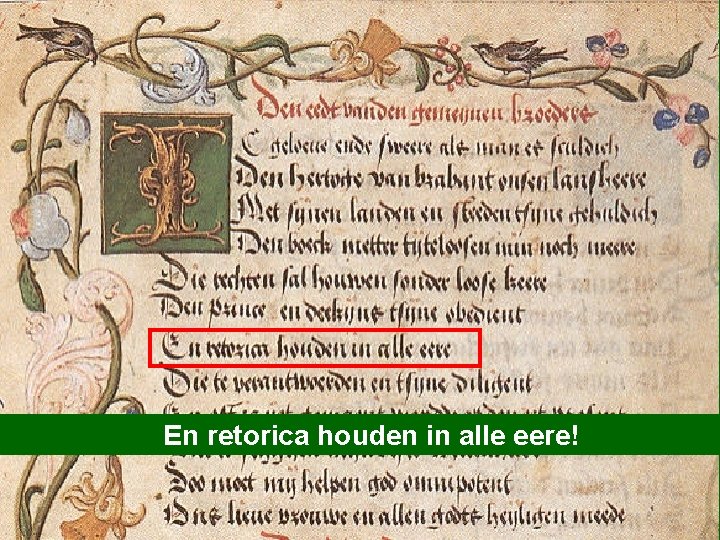 Den eedt vanden gemeynen broeders
IC geloeue ende sweere als man es sculdich
Den hertoge van brabant onsen lansheere
Met synen landen en steden tsyne gehuldich
Den boeck metter tyteloosen min noch meere
Die rechten sal houwen sonder loose keere
Den prince en dekyns tsyne obedient
En retorica houden in alle eere
Die te verantwoerden en tsyne diligent
En retorica houden in alle eere!
Soo moet my helpen god omnipotent
Ons lieue vrouwe en allen gods heyligen meede